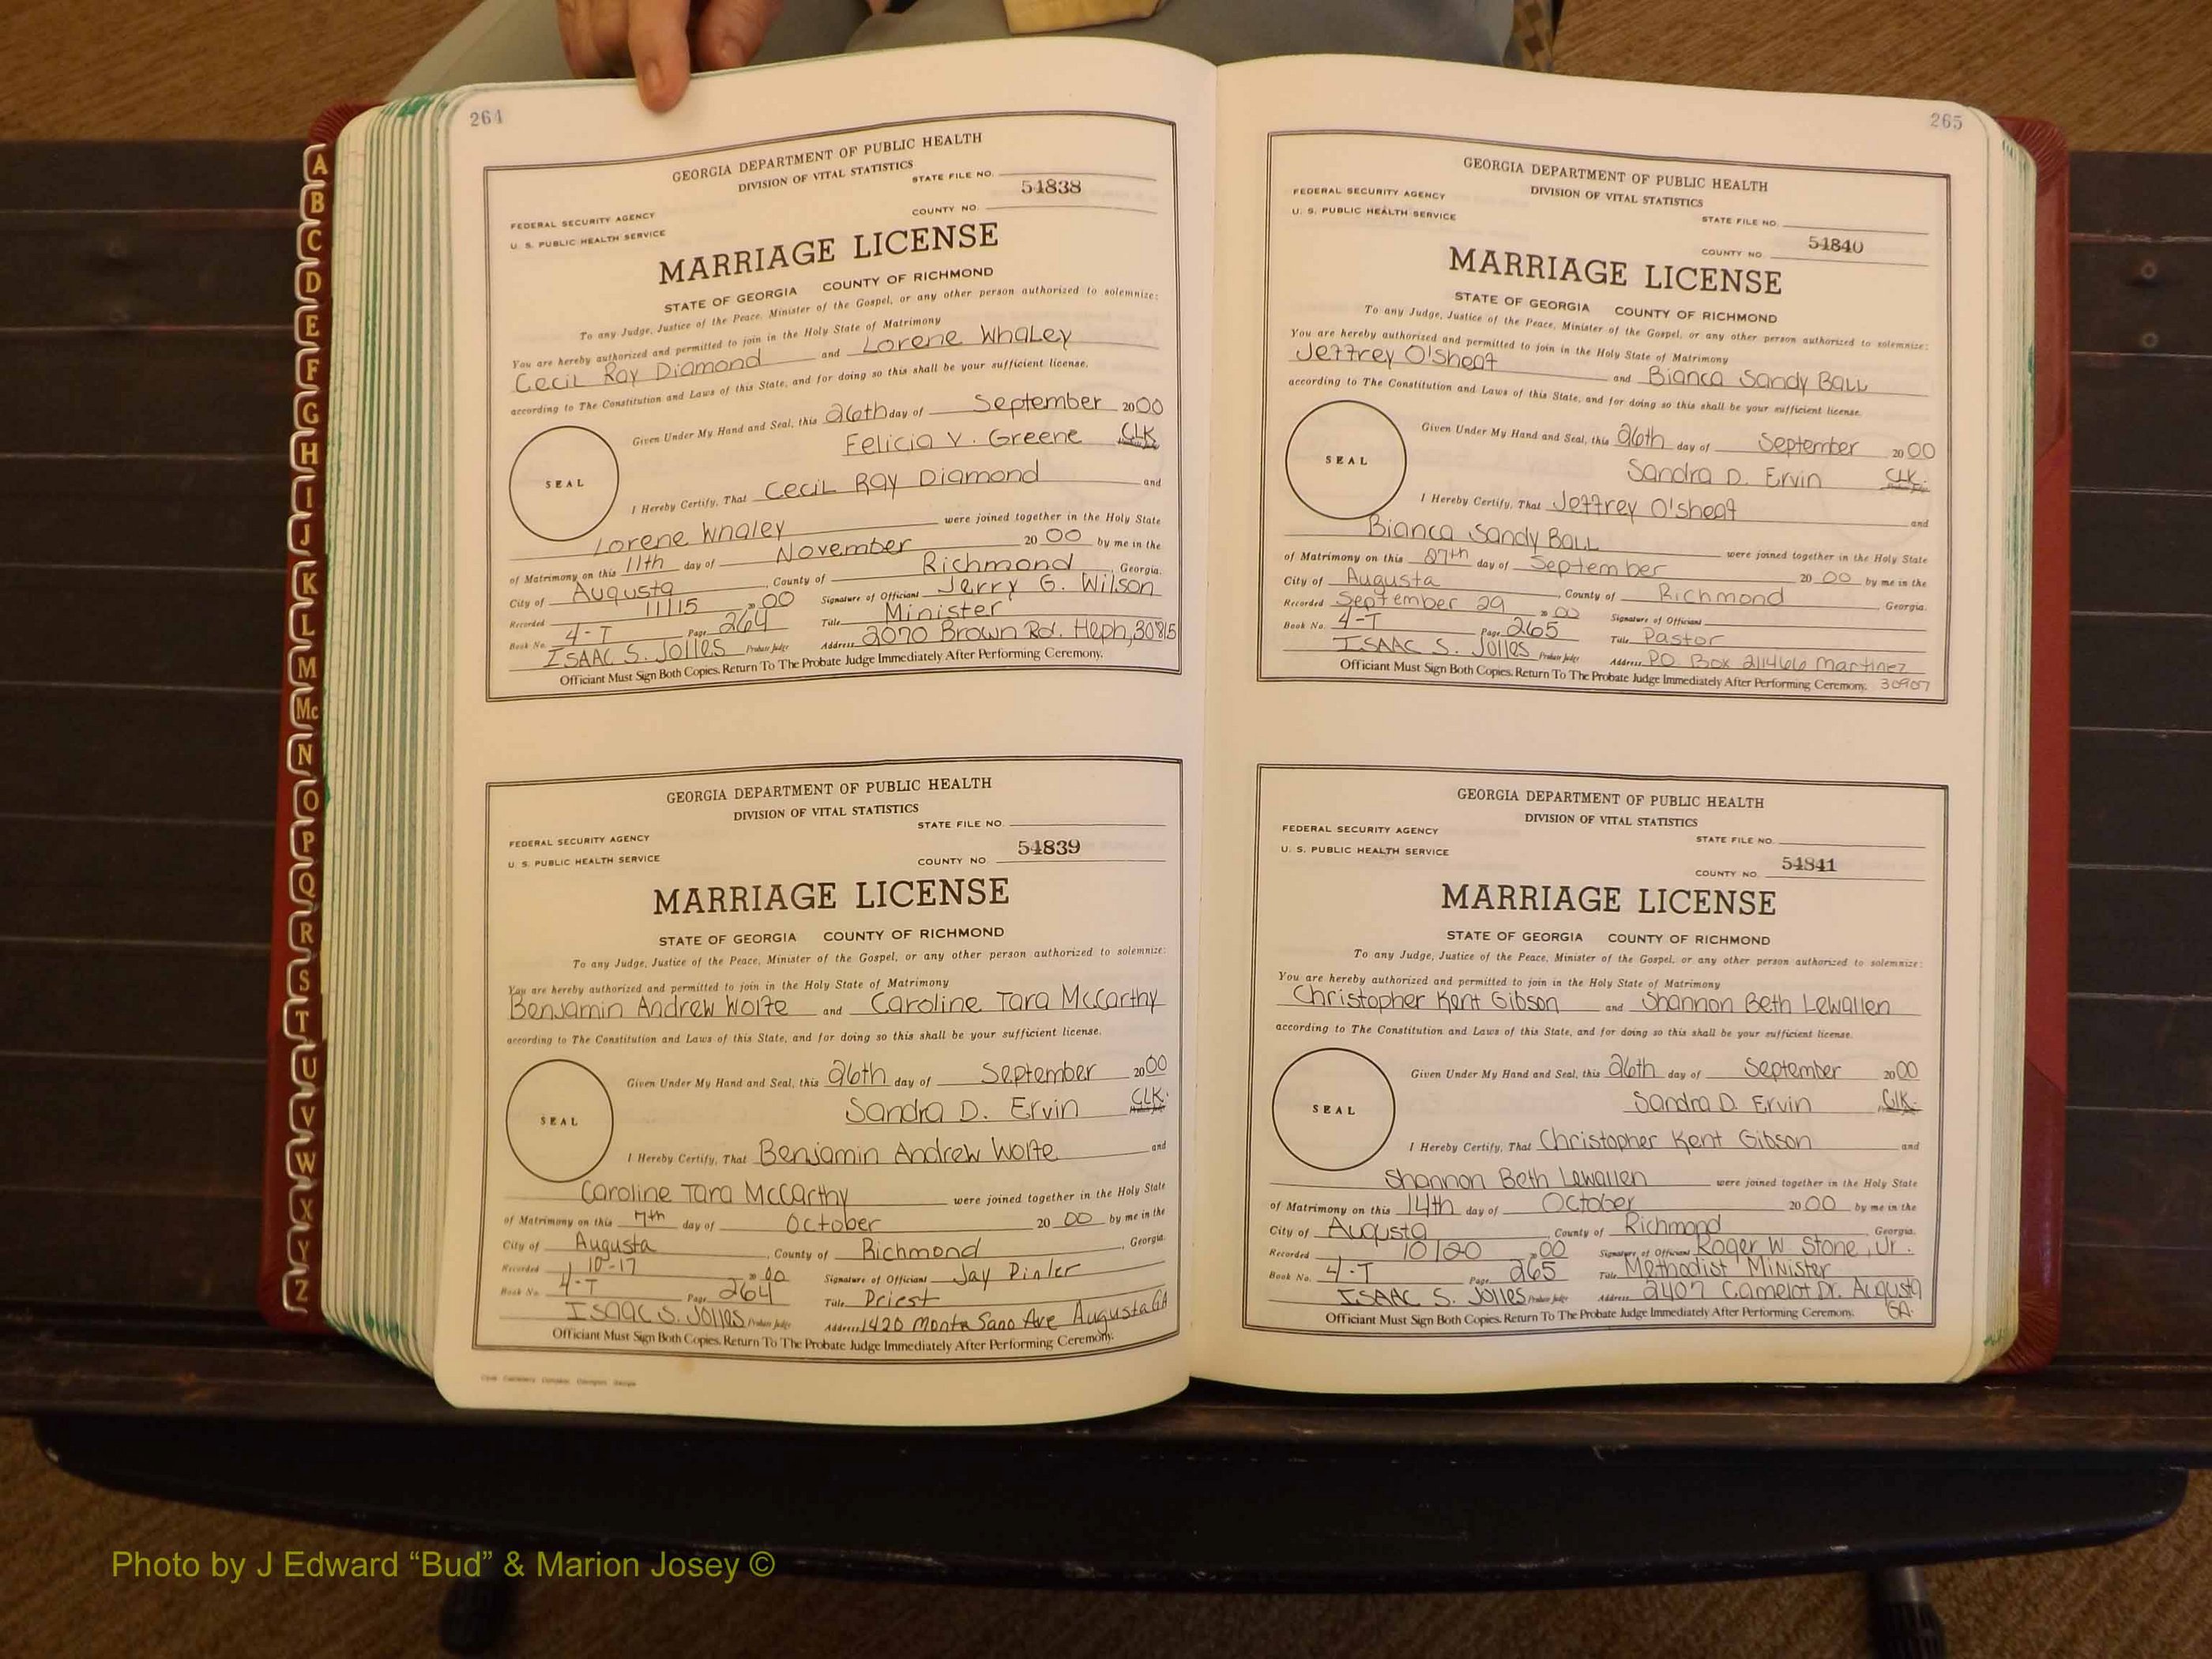 264
GEORGIA DEPARTMENT OF PUBLIC HEALTH
DIVISION OF VITAL STATISTICS
STATE FILE NO.
FEDERAL SECURITY AGENCY
U. S. PUBLIC HEALTH SERVICE
COUNTY NO. 54838
MARRIAGE LICENSE
STATE OF GEORGIA COUNTY OF RICHMOND
To any Judge, Justice of the Peace, Minister of the Gospel, or any other person authorized to solemnize:
You are hereby authorized and permitted to join in the Holy State of Matrimony
Cecil Ray Diamond and Lorene Whaley
according to The Constitution and Laws of this State, and for doing so this shall be your sufficient license.
Given Under My Hand and Seal, this 26th day of September 2000
Felicia V. Greene CLK
SEAL
I Hereby Certify, That Cecil Ray Diamond and
Lorene Whaley were joined together in the Holy State
of Matrimony on this 11th day of November 20 00 by me in the
City of Augusta, County of Richmond, Georgia.
Recorded 11/15 20 00 Signature of Officiant Jerry G. Wilson
Book No. 4-T Page 264 Title Minister
ISAAC S. Jolles Probate Judge Address 2070 Brown Rd. Heph, 30815
Officiant Must Sign Both Copies. Return To The Probate Judge Immediately After Performing Ceremony.
GEORGIA DEPARTMENT OF PUBLIC HEALTH
DIVISION OF VITAL STATISTICS
STATE FILE NO.
FEDERAL SECURITY AGENCY
U. S. PUBLIC HEALTH SERVICE
COUNTY NO. 54839
MARRIAGE LICENSE
STATE OF GEORGIA COUNTY OF RICHMOND
To any Judge, Justice of the Peace, Minister of the Gospel, or any other person authorized to solemnize:
You are hereby authorized and permitted to join in the Holy State of Matrimony
Benjamin Andrew Wolfe and Caroline Tara McCarthy
according to The Constitution and Laws of this State, and for doing so this shall be your sufficient license.
Given Under My Hand and Seal, this 26th day of September 2000
Sandra D. Ervin CLK.
SEAL
I Hereby Certify, That Benjamin Andrew Wolfe and
Caroline Tara McCarthy were joined together in the Holy State
of Matrimony on this 7th day of October 20 00 by me in the
City of Augusta, County of Richmond, Georgia.
Recorded 10-17 20 00 Signature of Officiant Jay
Book No. 4-T Page 264 Title Priest
ISAAC S. Jolles Probate Judge Address 1420 Monte Sano Ave Augusta GA
Officiant Must Sign Both Copies. Return To The Probate Judge Immediately After Performing Ceremony.
265
GEORGIA DEPARTMENT OF PUBLIC HEALTH
DIVISION OF VITAL STATISTICS
FEDERAL SECURITY AGENCY
U. S. PUBLIC HEALTH SERVICE
STATE FILE NO.
COUNTY NO. 54840
MARRIAGE LICENSE
STATE OF GEORGIA COUNTY OF RICHMOND
To any Judge, Justice of the Peace, Minister of the Gospel, or any other person authorized to solemnize:
You are hereby authorized and permitted to join in the Holy State of Matrimony
Jeffrey O'Sheaf and Bianca Sandy Ball
according to The Constitution and Laws of this State, and for doing so this shall be your sufficient license.
Given Under My Hand and Seal, this 26th day of September 2000
Sandra D. Ervin CLK.
SEAL
I Hereby Certify, That Jeffrey O'Sheaf and
Bianca Sandy Ball were joined together in the Holy State
of Matrimony on this 27th day of September 20 00 by me in the
City of Augusta, County of Richmond Georgia.
Recorded September 29 20 00 Signature of Officiant
Book No. 4-T Page 265 Title Pastor
ISAAC S. Jolles Probate Judge Address P.O. Box 211466 Martinez
Officiant Must Sign Both Copies. Return To The Probate Judge Immediately After Performing Ceremony. 30907
GEORGIA DEPARTMENT OF PUBLIC HEALTH
DIVISION OF VITAL STATISTICS
FEDERAL SECURITY AGENCY
U. S. PUBLIC HEALTH SERVICE
STATE FILE NO.
COUNTY NO. 54841
MARRIAGE LICENSE
STATE OF GEORGIA COUNTY OF RICHMOND
To any Judge, Justice of the Peace, Minister of the Gospel, or any other person authorized to solemnize:
You are hereby authorized and permitted to join in the Holy State of Matrimony
Christopher Kent Gibson and Shannon Beth Lewallen
according to The Constitution and Laws of this State, and for doing so this shall be your sufficient license.
Given Under My Hand and Seal, this 26th day of September 2000
Sandra D. Ervin Clk.
SEAL
I Hereby Certify, That Christopher Kent Gibson and
Shannon Beth Lewallen were joined together in the Holy State
of Matrimony on this 14th day of October 20 00 by me in the
City of Augusta, County of Richmond Georgia.
Recorded 10/20 20 00 Signature of Officiant Roger W Stone, Jr.
Book No. 4-T Page 265 Title Methodist Minister
ISAAC S. Jolles Probate Judge Address 2407 Camelot Dr. Augusta
Officiant Must Sign Both Copies. Return To The Probate Judge Immediately After Performing Ceremony. GA.
A
B
C
D
E
F
G
H
I
J
K
L
M
Mc
N
O
P
Q
R
S
T
U
V
W
X
Y
Z
Photo by J Edward “Bud” & Marion Josey ©